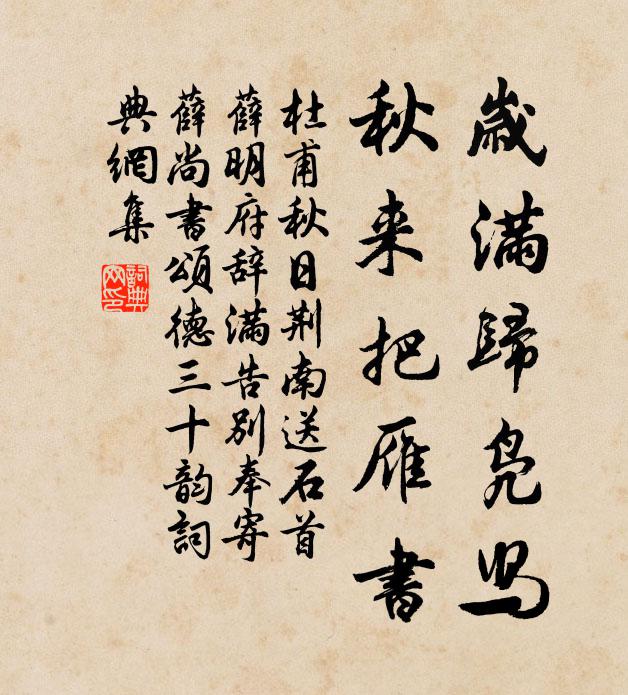 歲滿歸凫舄
秋来把雁書
杜甫秋日荆南送石首
薛明府辞滿告別奉寄
薛尚書頌德三十韵詞
典網集
詞典网印